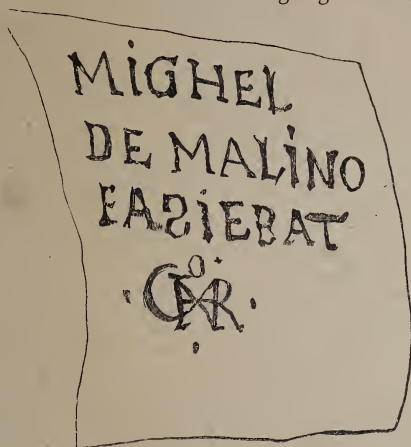 MiGHEL
DE MALiNO
FAƧiEBAT